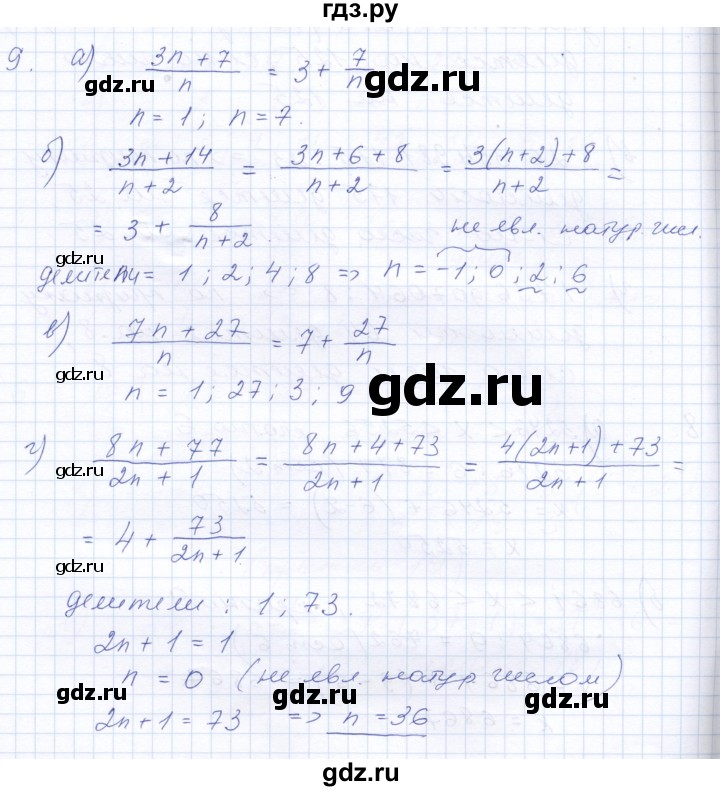 гдз.ру
9. а) (3n + 7)/n = 3 + 7/n
gdz.ru gdz.ru
n = 1 ; n = 7.
б) (3n + 14)/(n + 2) = (3n + 6 + 8)/(n + 2) = (3(n+2) + 8)/(n + 2) =
gdz.ru gdz.ru
= 3 + 8/(n + 2). не явл. натур. числ.
gdz.ru
делители = 1 ; 2 ; 4 ; 8 => n = -1 ; 0 ; 2 ; 6
в) (7n + 27)/n = 7 + 27/n
gdz.ru
n = 1 ; 27 ; 3 ; 9
gdz.ru
г) (8n + 77)/(2n + 1) = (8n + 4 + 73)/(2n + 1) = (4(2n+1) + 73)/(2n + 1) =
gdz.ru
= 4 + 73/(2n + 1)
gdz.ru
делители : 1 ; 73.
2n + 1 = 1
n = 0 (не явл. натур. числом)
gdz.ru gdz.ru gdz.ru
2n + 1 = 73 => n = 36
gdz.ru